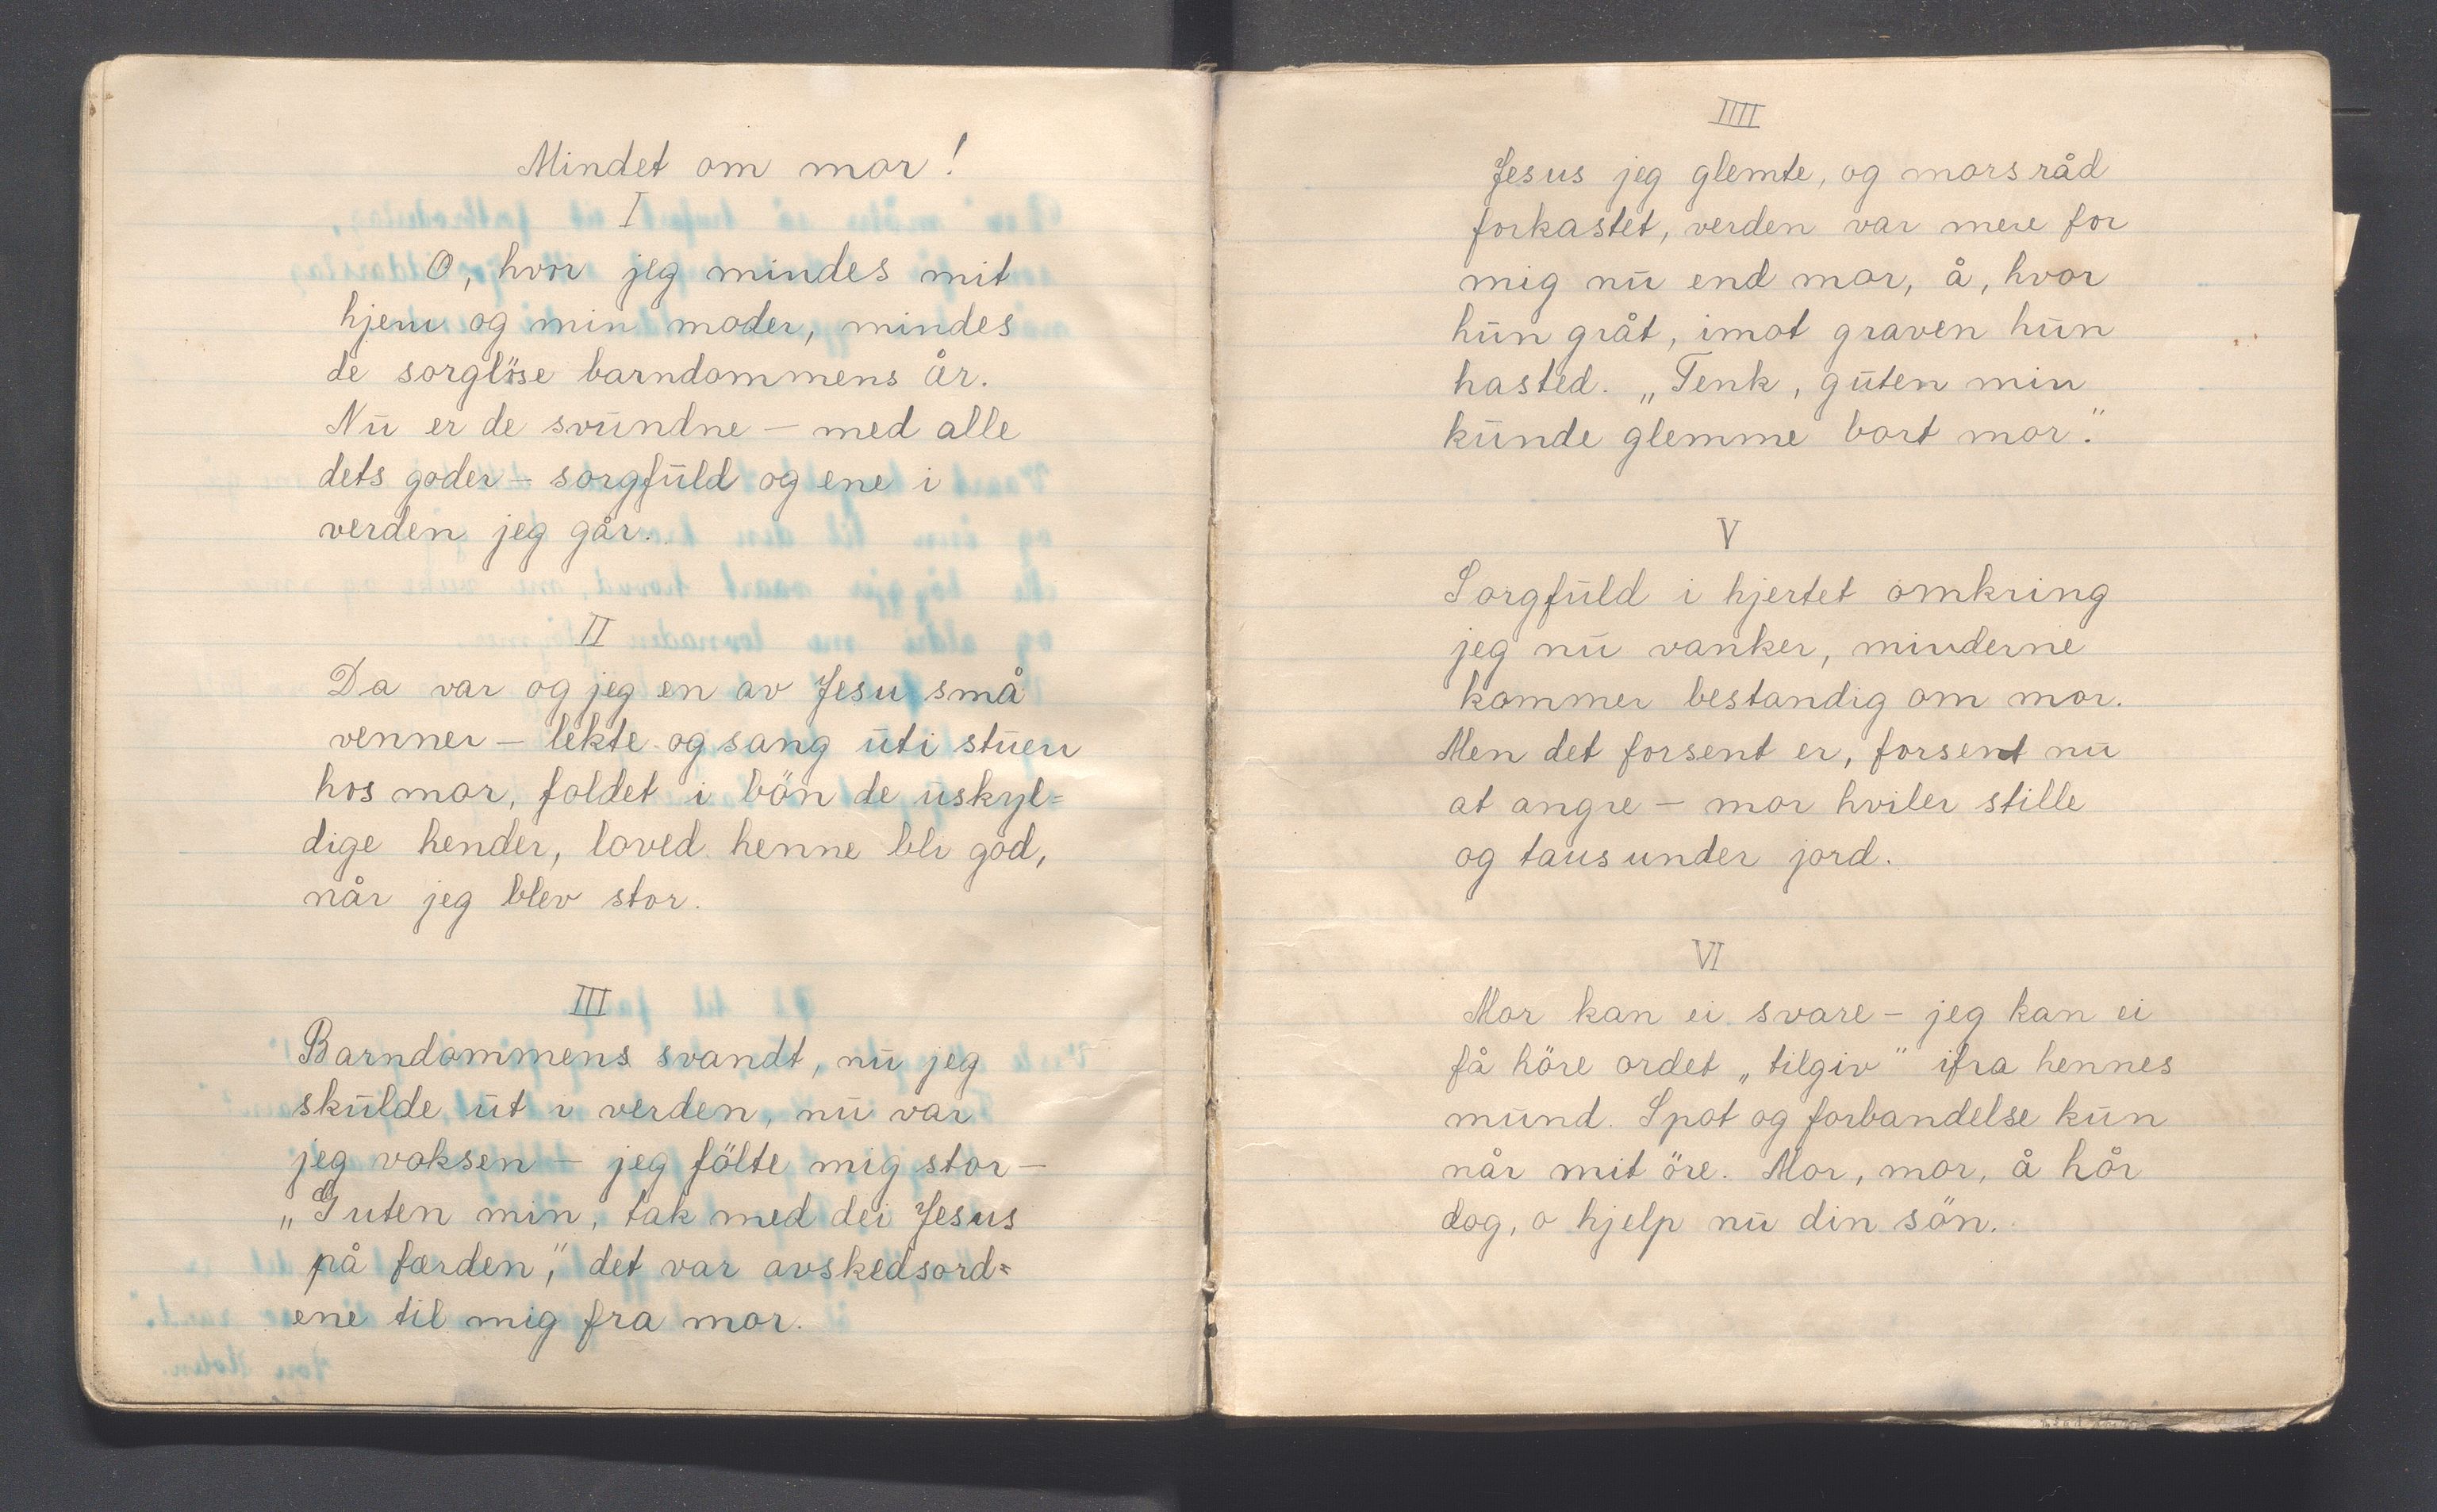 Mindet om mor!
I
O, hvor jeg mindes mit
hjem og min moder, mindes
de sorglöse barndommens år.
Nu er de svundne – med alle
dets goder – sorgfuld og ene i
verden jeg går.
II
Da var og jeg en av Jesu små
venner – lekte og sang uti stuen
hos mor, foldet i bön de uskyl=
dige hender, loved henne bli god,
når jeg blev stor.
III
Barndommens svandt, nu jeg
skulde ut i verden, nu var
jeg voksen – jeg fölte mig stor –
„Guten min, tak med dei Jesus
på færden," det var avskedsord=
ene til mig fra mor.
IIII
Jesus jeg glemte, og mors råd
forkastet, verden var mere for
mig nu end mor, å, hvor
hun gråt, imot graven hun
hasted. „Tenk, guten min
kunde glemme bort mor."
V
Sorgfuld i hjertet omkring
jeg nu vanker, minderne
kommer bestandig om mor.
Men det forsent er, forsent nu
at angre – mor hviler stille
og taus under jord.
VI
Mor kan ei svare – jeg kan ei
få höre ordet „tilgiv" ifra hennes
mund. Spot og forbandelse kun
når mit öre. Mor, mor, å hör
dog, o hjelp nu din sön.